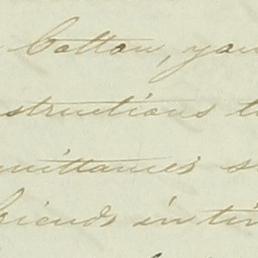 Cotton, you
structions t
mittances s
friends in ti